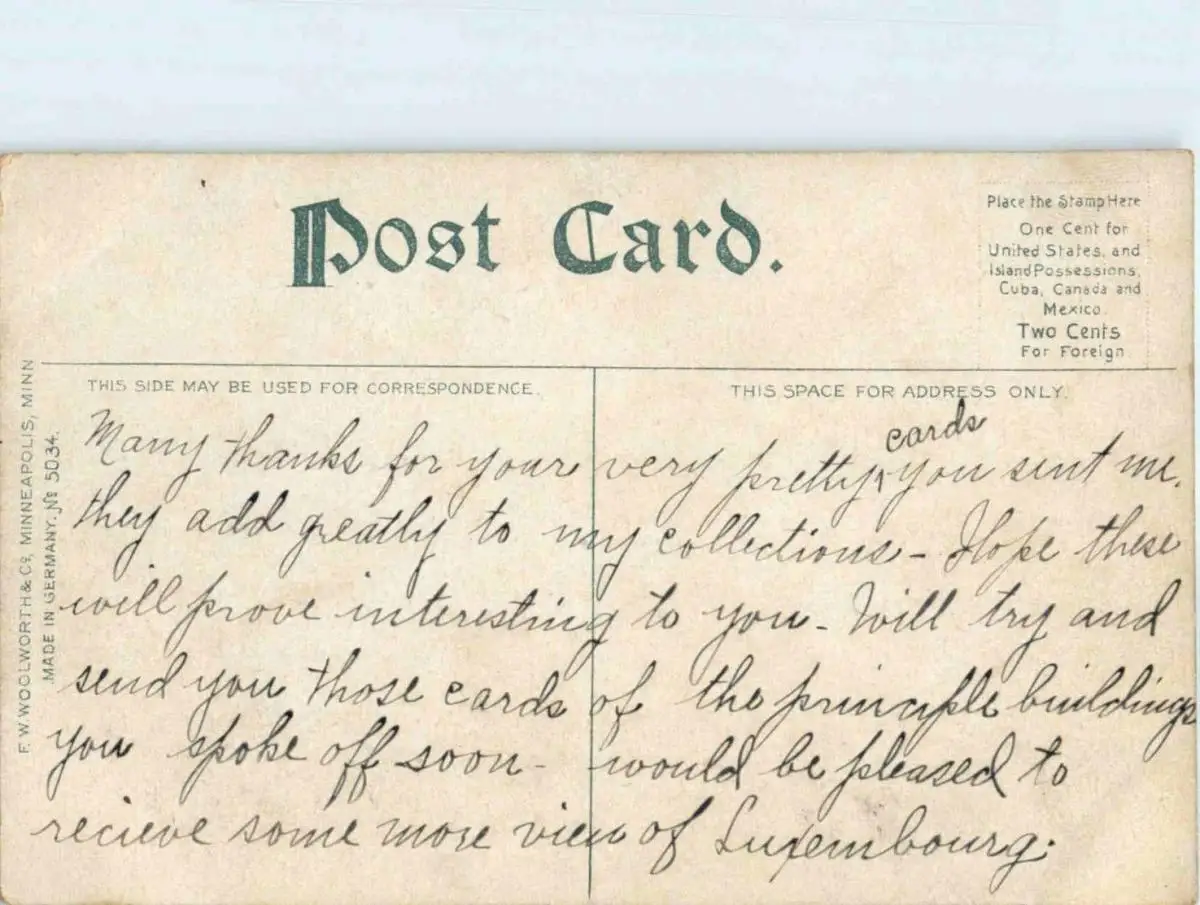 Post Card.
Place the Stamp Here
One Cent for
United States, and
Island Possessions,
Cuba, Canada and
Mexico.
Two Cents
For Foreign
F. W. WOOLWORTH & Co, MINNEAPOLIS, MINN
MADE IN GERMANY. No 5034.
THIS SIDE MAY BE USED FOR CORRESPONDENCE.
THIS SPACE FOR ADDRESS ONLY.
cards
Many thanks for your very pretty ‸ you sent me.
they add greatly to my collections - Hope these
will prove interesting to you - Will try and
send you those cards of the principle buildings
you spoke off soon - would be pleased to
recieve some more view of Luxembourg.